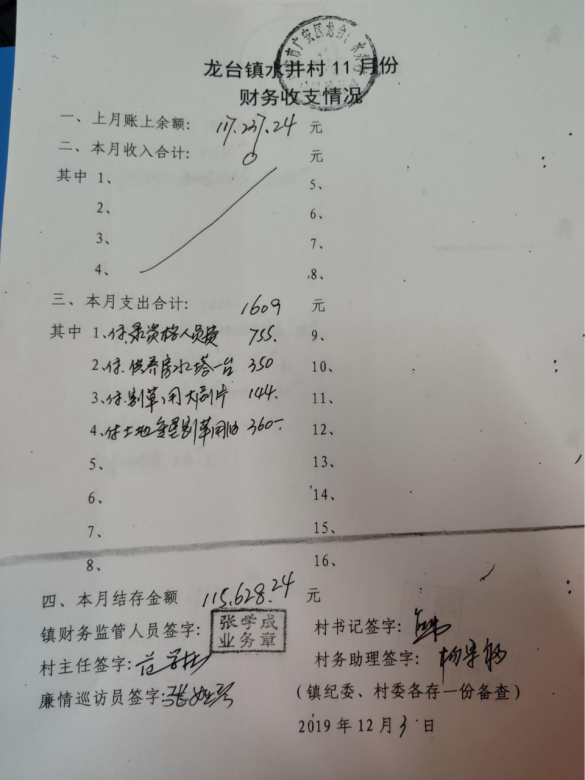 龙台镇水井村11月份
财务收支情况
一、上月账上余额：117.237.24 元
二、本月收入合计：0 元
其中 1、 5、
2、 6、
3、 7、
4、 8、
三、本月支出合计：1609 元
其中 1、付录资格人员费 755. 9、
2、付供养房水塔一台 350 10、
3、付割草用大刀片 144. 11、
4、付土地 割草用油 360- 12、
5、 13、
6、 14、
7、 15、
8、 16、
四、本月结存金额 115.628.24 元
镇财务监管人员签字：张学成 业务章 村书记签字：
村主任签字： 村务助理签字：
廉情巡访员签字：张
（镇纪委、村委各存一份备查）
2019年12月3日